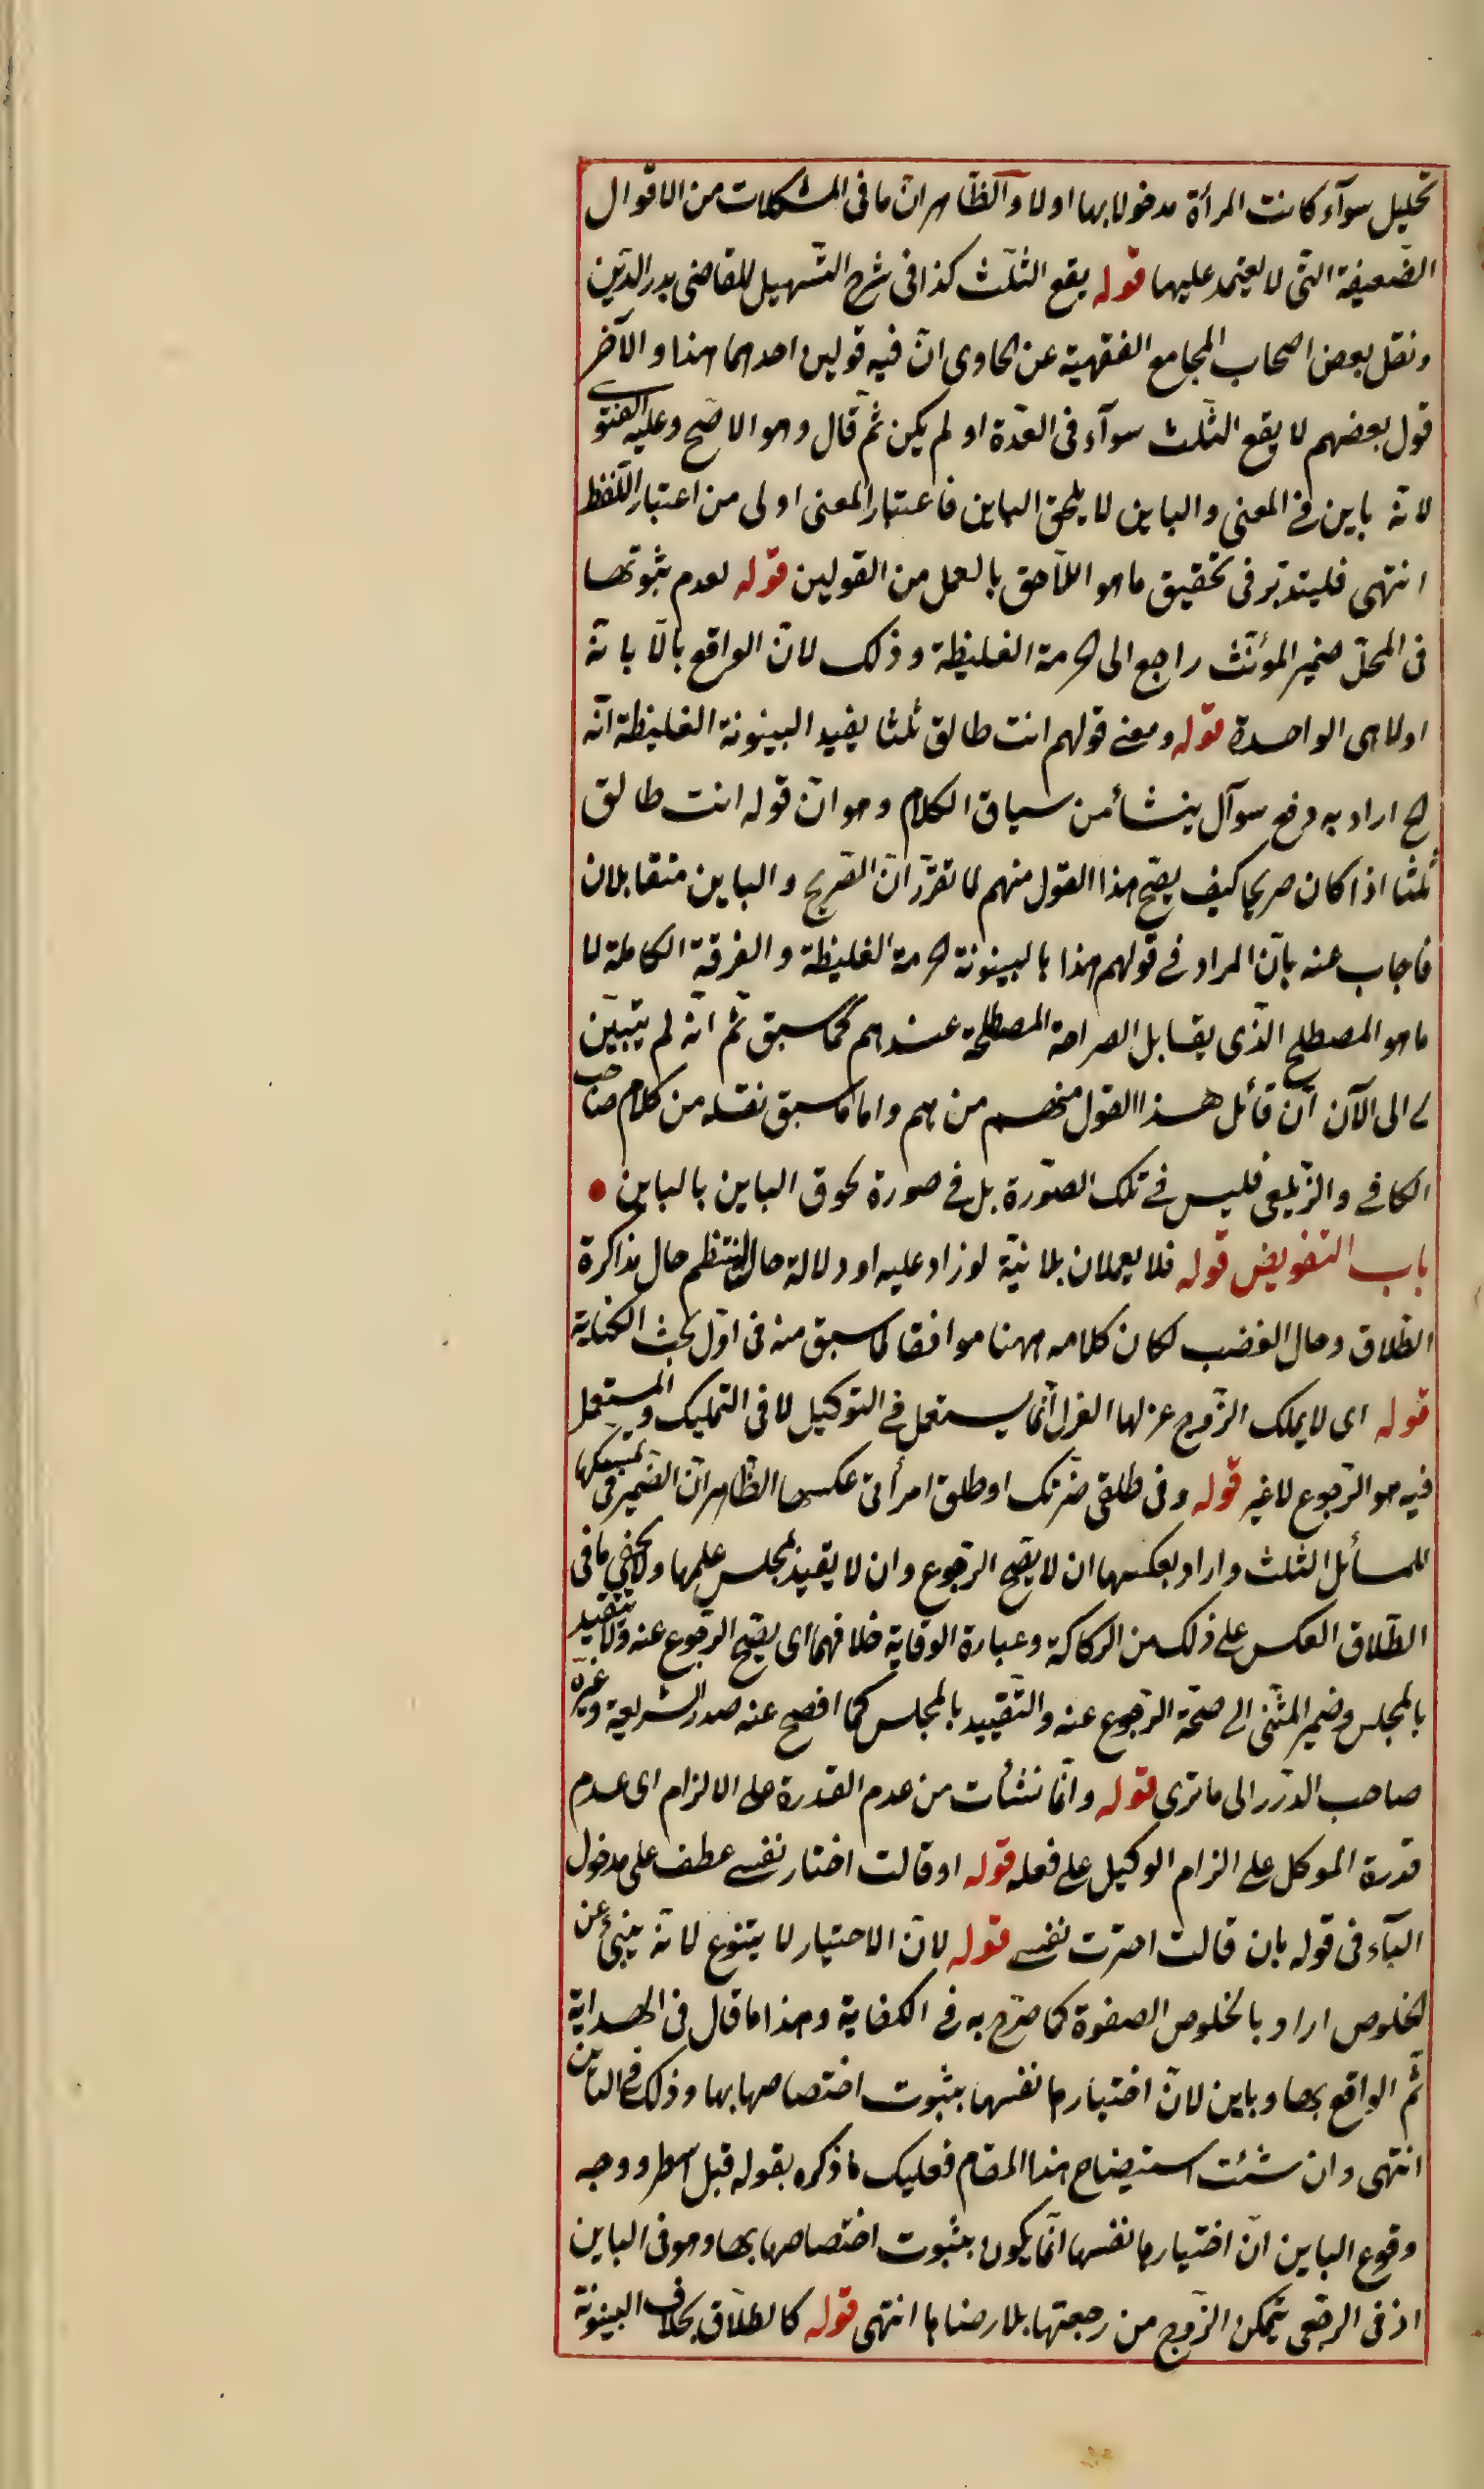 تحليل سوآء كانت المرأة مدخولا بها او لا والظاهر ان ما فى المشكلات من الاقوال
الضعيفة التى لا يعتمد عليها قوله يقع الثلث كذا فى شرح التسهيل للقاضى بدر الدين
ونقل بعض اصحاب المجامع الفقهية عن الحاوى ان فيه قولين احدهما هذا والآخر
قول بعضهم لا يقع الثلث سوآء فى العدة او لم يكن ثم قال وهو الاصح وعليه الفتوى
لانه باين فى المعنى والباين لا يلحق الباين فاعتبار المعنى اولى من اعتبار اللفظ
انتهى فليتدبر فى تحقيق ما هو اللاحق بالعمل من القولين قوله لعدم ثبوتها
فى المحل ضمير المؤنث راجع الى الحرمة الغليظة وذلك لان الواقع بالابانة
اولا هى الواحدة قوله ومعنى قولهم انت طالق ثلثا يفيد البينونة الغليظة انه
الخ اراد به دفع سوآل ينشأ من سياق الكلام وهو ان قوله انت طالق
ثلثا اذا كان صريحا كيف يصح هذا القول منهم لما تقرر ان الصريح والباين متقابلان
فاجاب عنه بان المراد فى قولهم هذا بالبينونة الحرمة الغليظة والفرقة الكاملة لا
ما هو المصطلح الذى يقابل الصراحة المصطلحة عندهم كما سبق ثم انه لم يتبين
لى الى الآن ان قائل هذا القول منهم من هم واما ما سبق نقله من كلام صاحب
الكافى والزيلعى فليس فى تلك الصورة بل فى صورة لحوق الباين بالباين
باب التفويض قوله فلا يعملان بلا نية لو زاد عليه او دلالة حال لينتظم حال مذاكرة
الطلاق وحال الغضب لكان كلامه ههنا موافقا لما سبق منه فى اول بحث الكناية
قوله اى لا يملك الزوج عزلها العزل انما يستعمل فى التوكيل لا فى التمليك والمستعمل
فيه هو الرجوع لا غير قوله وفى طلقى ضرتك او طلق امرأتى عكسها الظاهر ان الضمير فى عكسها
للمسائل الثلث واراد بعكسها ان لا يصح الرجوع وان لا يقيد بمجلس علمها ولا يخفى ما فى
اطلاق العكس على ذلك من الركاكة وعبارة الوقاية خلافهما اى يصح الرجوع عنه ولا يتقيد
بالمجلس وضمير المثنى الى صحة الرجوع عنه والتقييد بالمجلس كما افصح عنه صدر الشريعة وغيره
صاحب الدرر الى ما ترى قوله وانما نشأت من عدم القدرة على الالزام اى عدم
قدرة الموكل على الزام الوكيل على فعله قوله او قالت اختار نفسى عطف على مدخول
البآء فى قوله بان قالت اخترت نفسى قوله لان الاختيار لا يتنوع لانه ينبئ عن
الخلوص اراد بالخلوص الصفوة كما صرح به فى الكفاية وهذا ما قال فى الهداية
ثم الواقع بها وباين لان اختيارها نفسها بثبوت اختصاصها بها وذلك فى الباين
انتهى وان شئت استيضاح هذا المقام فعليك ما ذكره بقوله قبل اسطر ووجه
وقوع الباين ان اختيارها نفسها انما يكون بثبوت اختصاصها بها وهو فى الباين
اذ فى الرجعى يتمكن الزوج من رجعتها بلا رضاها انتهى قوله كالطلاق بخلاف البينونة